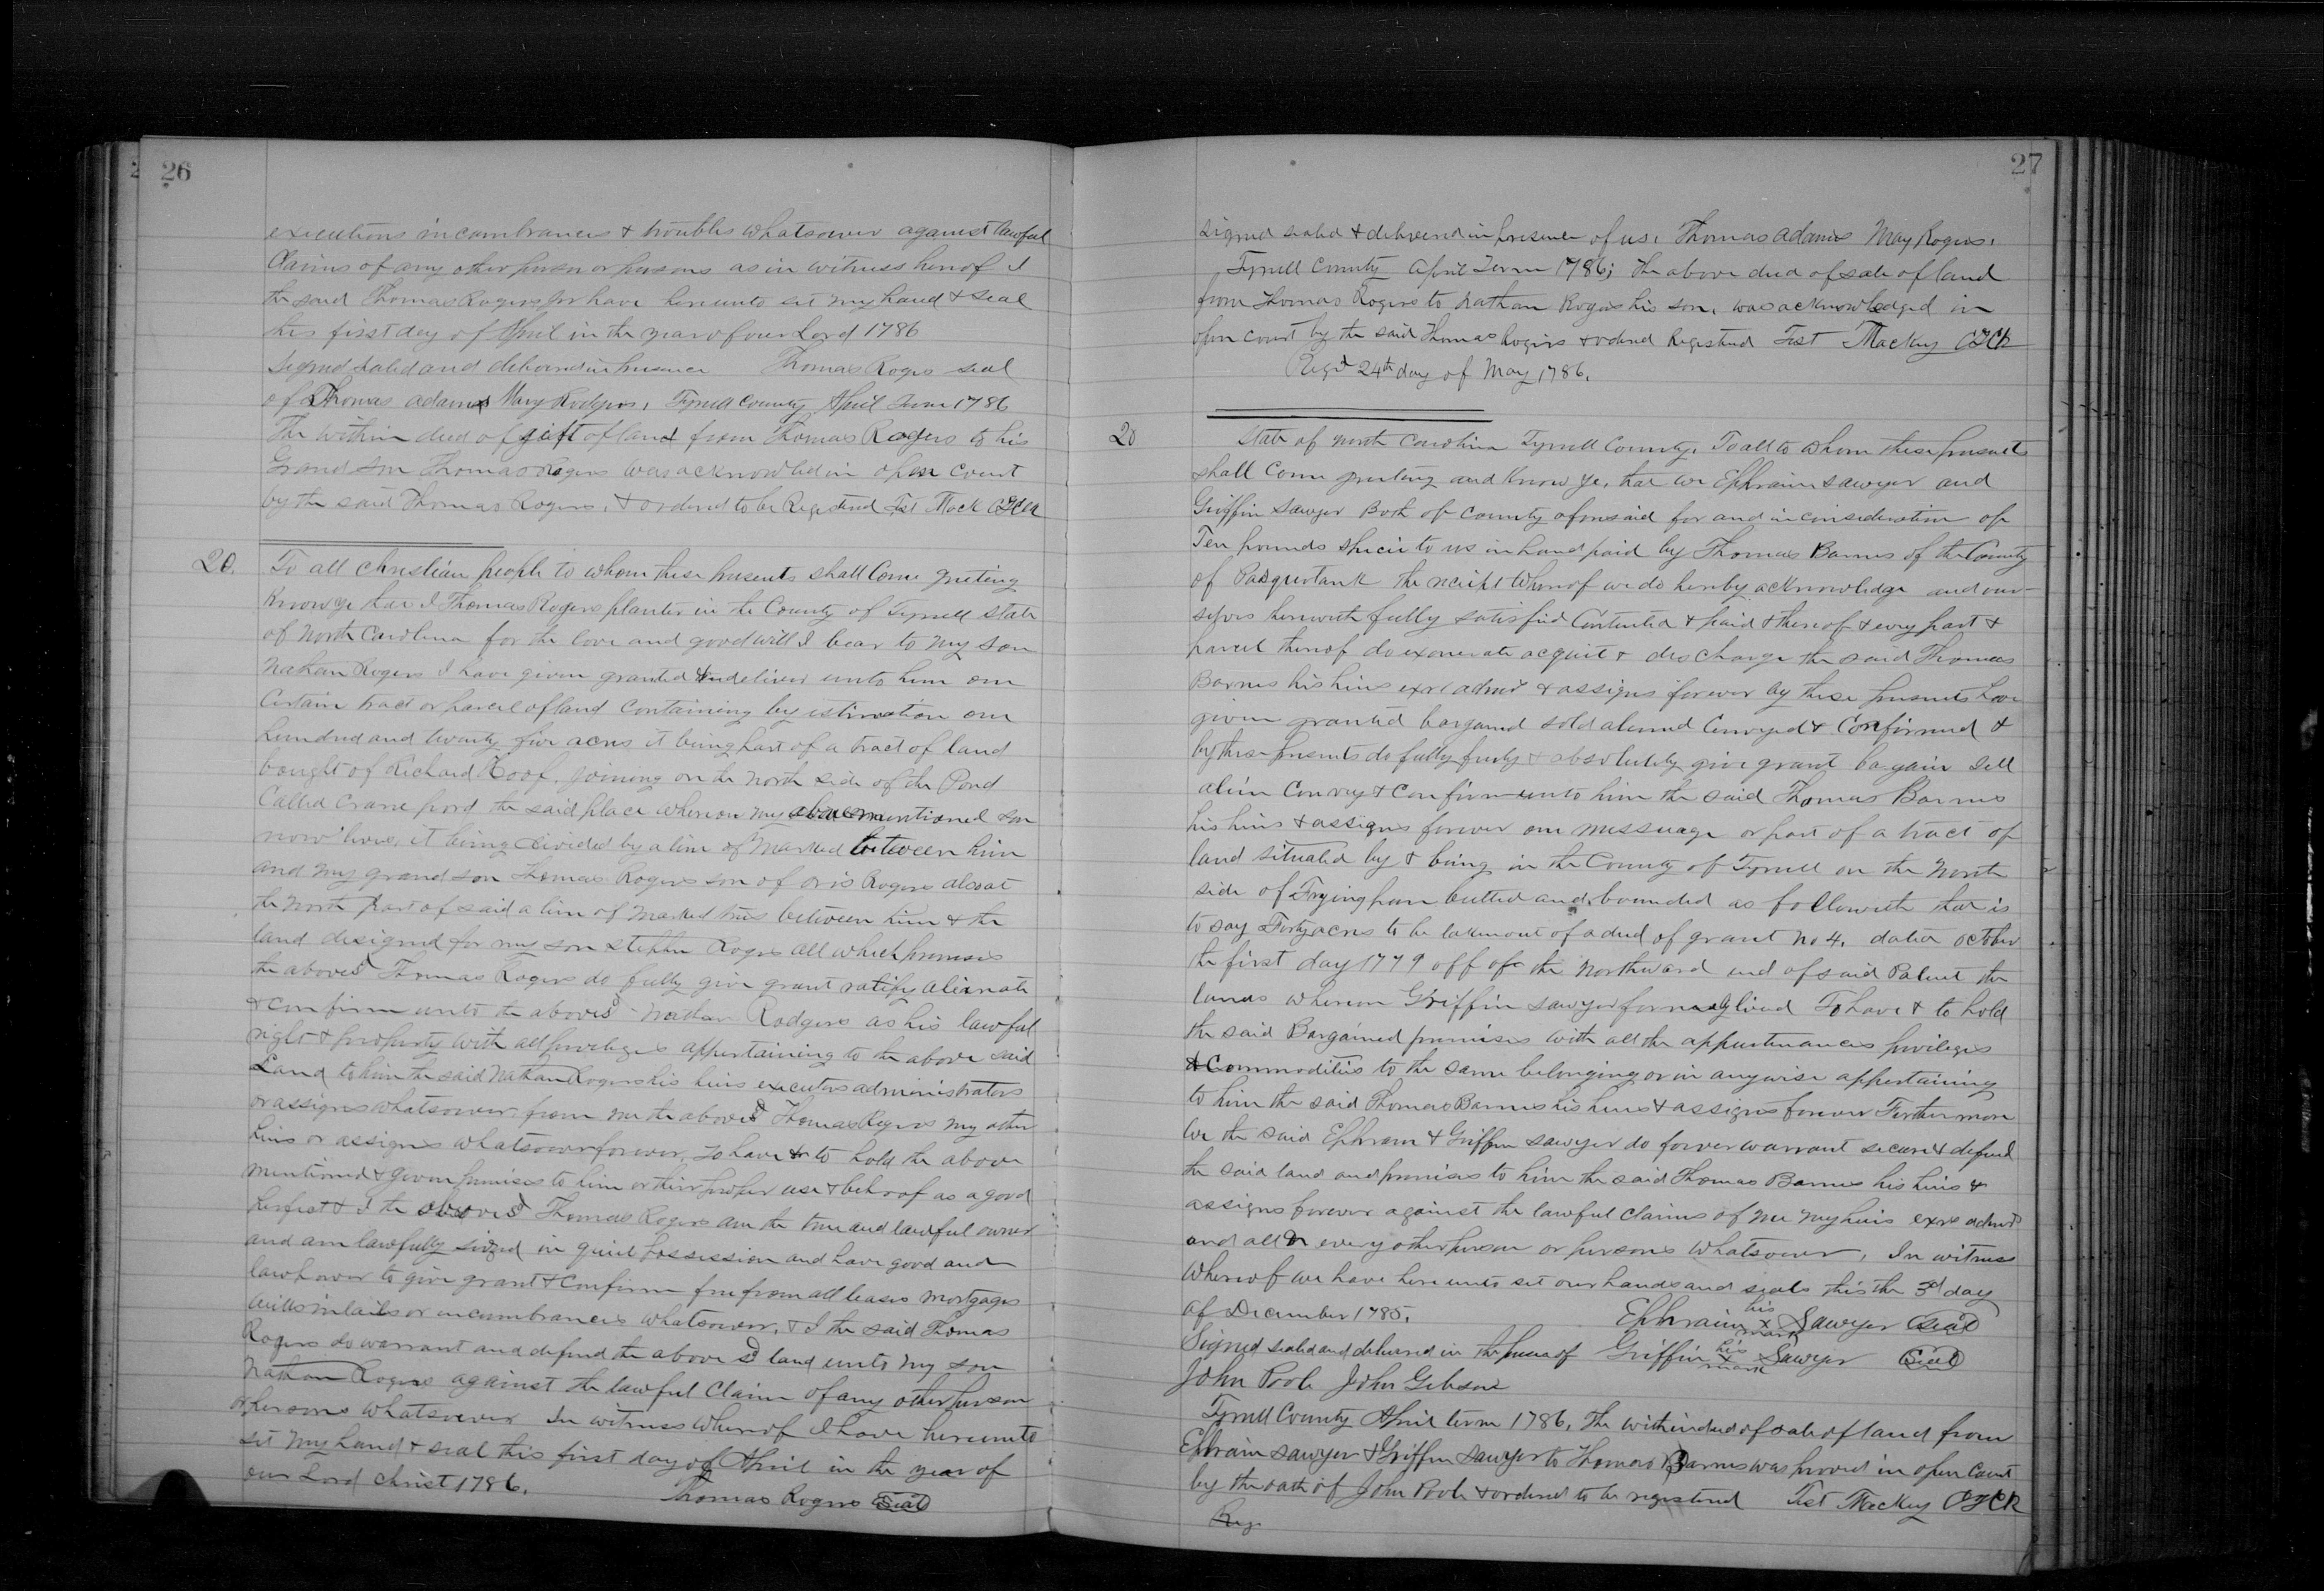 26
executions incumbrances & troubles whatsoever against lawful
Claims of any other person or persons as in witness hereof I
the said Thomas Rogers for have hereunto set my hand & seal
his first day of April in the year of our Lord 1786
Signed sealed and delivered in presence Thomas Rogers seal
of Thomas Adams Mary Rodgers, Tyrrell County April Term 1786
The within deed of gift of land from Thomas Rogers to his
Grand Son Thomas Rogers was acknowled in open Court
by the said Thomas Rogers, & ordered to be Registered Test Mack CTCR
20. To all Christian people to whom these presents shall Come greeting
Know ye that I Thomas Rogers planter in the County of Tyrrell State
of North Carolina for the love and good will I bear to my son
Nathan Rogers I have given granted & deliver unto him one
Certain tract or parcel of land Containing by estimation one
hundred and twenty five acres it being part of a tract of land
bought of Richard Hoof, joining on the North side of the Pond
Called Crane pond the said place whereon my above mentioned son
now lives, it being divided by a line of Marked between him
and my grand son Thomas Rogers son of Rogers also at
the North part of said a line of Marked trees between him & the
land designed for my son Stephen Rogers all which premises
the aboves'd Thomas Rogers do fully give grant ratify alienate
& confirm unto the aboves'd Nathan Rodgers as his lawful
right & property with all priveleges appertaining to the above said
Land to him the said Nathan Rogers his heirs executors administrators
or assigns whatsoever from me the aboves'd Thomas Rogers my other
heirs or assigns whatsoever forever, To have & to hold the above
mentioned & given premises to him or their proper use & behoof as a good
perfect & I the aboves'd Thomas Rogers am the true and lawful owner
and am lawfully siezed in quiet possession and have good and
law power to give grant & Confirm free from all leases mortgages
wills intails or incumbrances whatsoever, & I the said Thomas
Rogers do warrant and defend the above sd land unto my son
Nathan Rogers against the lawful Claim of any other person
or persons whatsoever In witness whereof I have hereunto
set my hand & seal this first day of April in the year of
our Lord Christ 1786.
Thomas Rogers Seal
27
Signed sealed & delivered in presence of us, Thomas Adams May Rogers,
Tyrrell County April Term 1786; the above deed of sale of land
from Thomas Rogers to Nathan Rogers his son, was acknowledged in
open court by the said Thomas Rogers & ordered Registered Test Mackey CTCR
Reg'd 24th day of May 1786.
20 State of North Carolina Tyrrell County, To all to whom these presents
shall Come greeting and Know ye, that we Ephraim Sawyer and
Griffin Sawyer Both of County aforesaid for and in consideration of
Ten pounds specie to us in hand paid by Thomas Barnes of the County
of Pasquotank the receipt whereof we do hereby acknowledge and our-
selves herewith fully satisfied Contented & paid & thereof & every part &
parcel thereof do exonerate acquit & discharge the said Thomas
Barnes his heirs exrs admrs & assigns forever by these presents have
given granted bargained sold aliened Conveyed & Confirmed &
by these presents do fully freely & absolutely give grant bargain sell
alien Convey & Confirm unto him the said Thomas Barnes
his heirs & assigns forever one messuage or part of a tract of
land situated by & being in the County of Tyrrell on the North
side of Fryingpan butted and bounded as followeth that is
to say Forty acres to be taken out of a deed of grant No 4, dated October
the first day 1779 off of the Northward end of said Patent the
lands whereon Griffin Sawyer formerly lived To have & to hold
the said Bargained premises with all the appurtenances privileges
& Commodities to the same belonging or in anywise appertaining
to him the said Thomas Barnes his heirs & assigns forever Further more
We the said Ephram & Griffin Sawyer do forver warrant secure & defend
the said land and premises to him the said Thomas Barnes his heirs &
assigns forever against the lawful claims of me my heirs exrs admrs
and all & every other person or persons whatsoever, In witness
whereof we have here unto set our hands and seals this the 3d day
of December 1785. Ephraim his x mark Sawyer Seal
Signed sealed and delivered in the presence of Griffin his x mark Sawyer Seal
John Poole John Gibson
Tyrrell County April term 1786, The within deed of sale of land from
Ephraim Sawyer & Griffin Sawyer to Thomas Barnes was proved in open Court
by the oath of John Poole & ordered to be registered Test Mackey CTCR
Reg.